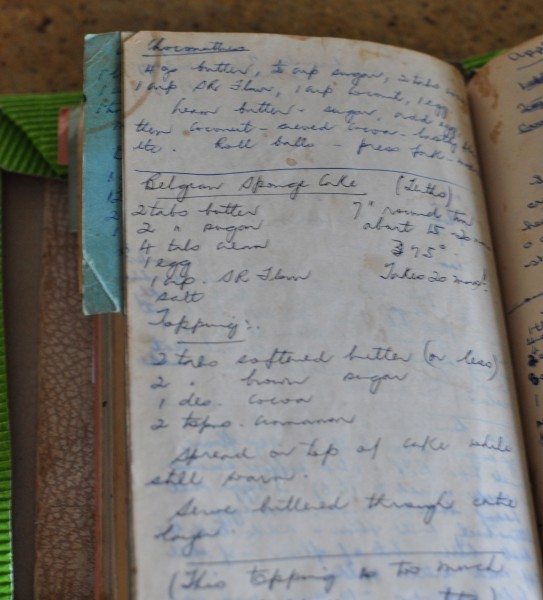 4 oz butter, ½ cup sugar, 2 tabs
1 cup SR Flour, 1 cup coconut, 1 egg
butter - sugar, add egg
coconut - sieved cocoa - lastly
etc. Roll balls - press fork -
Belgian Sponge Cake
2 tabs butter 7" round tin
2 " sugar about 15-20
4 tabs cream 375°
1 egg
1 cup. SR Flour Takes 20 mins!
salt
Topping:
2 tabs softened butter (or less)
2 " brown sugar
1 des. cocoa
2 tspns. cinnamon
Spread on top of cake while
still warm.
Serve buttered through
(This topping is too much